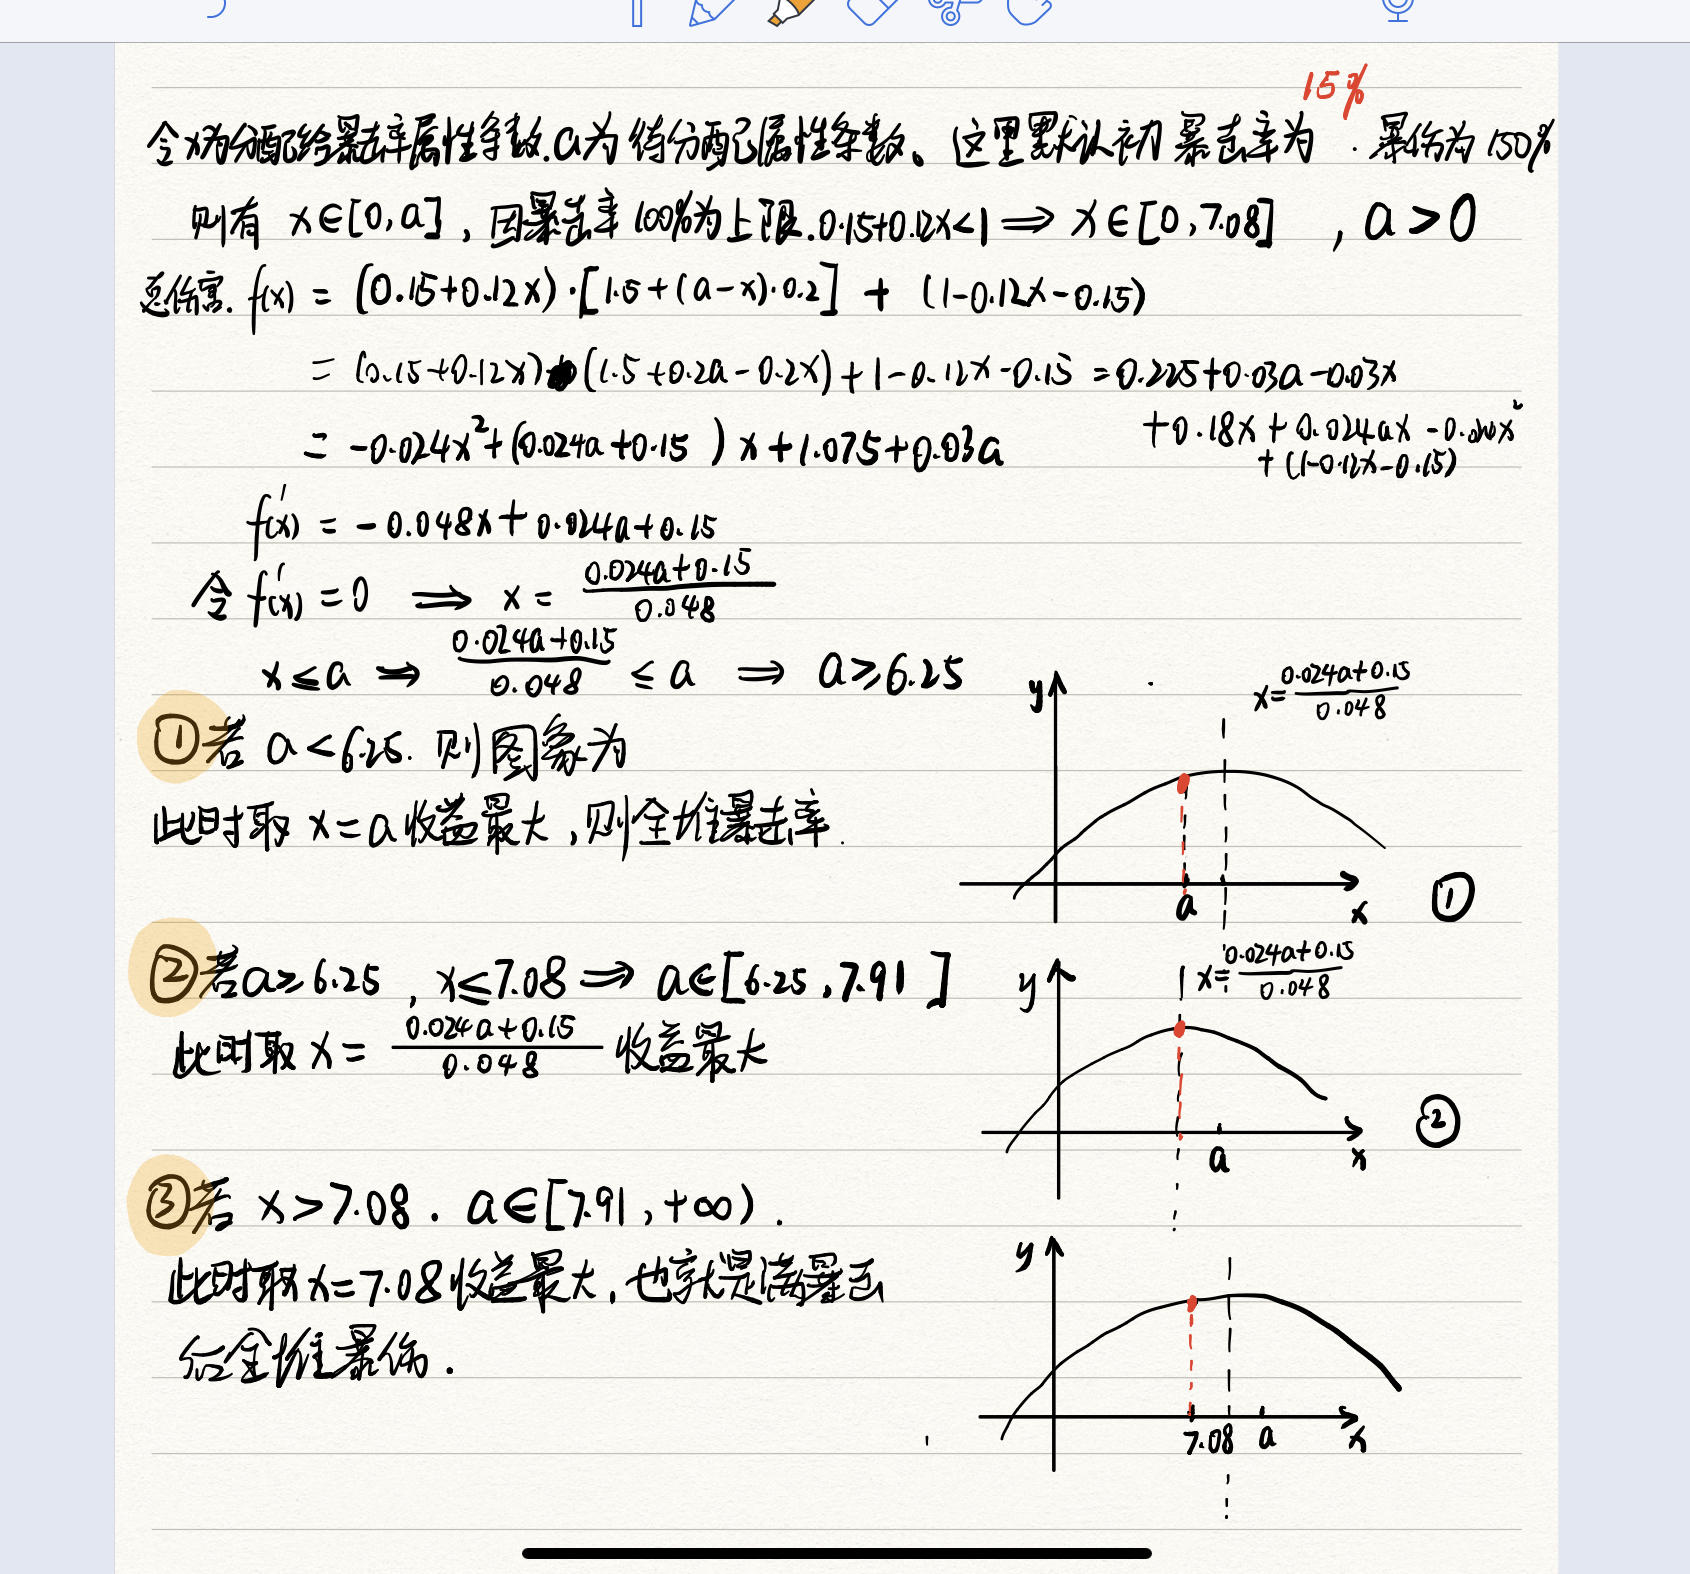 15%
令x为分配给暴击率属性条数.a为待分配属性条数。这里默认初暴击率为 .暴伤为150%
则有 x∈[0,a],因暴击率100%为上限.0.15+0.12x<1⟹x∈[0,7.08] ,a>0
总伤害.f(x) = (0.15+0.12x)·[1.5+(a-x)·0.2] + (1-0.12x-0.15)
= (0.15+0.12x)(1.5+0.2a-0.2x)+1-0.12x-0.15 =0.225+0.03a-0.03x
+0.18x+0.024ax-0.024x²
+(1-0.12x-0.15)
= -0.024x²+(0.024a+0.15)x+1.075+0.03a
f'(x) = -0.048x+0.024a+0.15
令 f'(x)=0 ⟹ x= (0.024a+0.15)/0.048
x≤a ⟹ (0.024a+0.15)/0.048 ≤a ⟹ a≥6.25
①若 a<6.25. 则图象为
此时取 x=a收益最大,则全堆暴击率.
y
x=(0.024a+0.15)/0.048
a
x
①
②若a≥6.25 ,x≤7.08⟹ a∈[6.25,7.91]
此时取 x= (0.024a+0.15)/0.048 收益最大
y
x=(0.024a+0.15)/0.048
a
x
②
③若 x>7.08. a∈[7.91,+∞).
此时取x=7.08收益最大,也就是满暴击
后全堆暴伤.
y
7.08
a
x